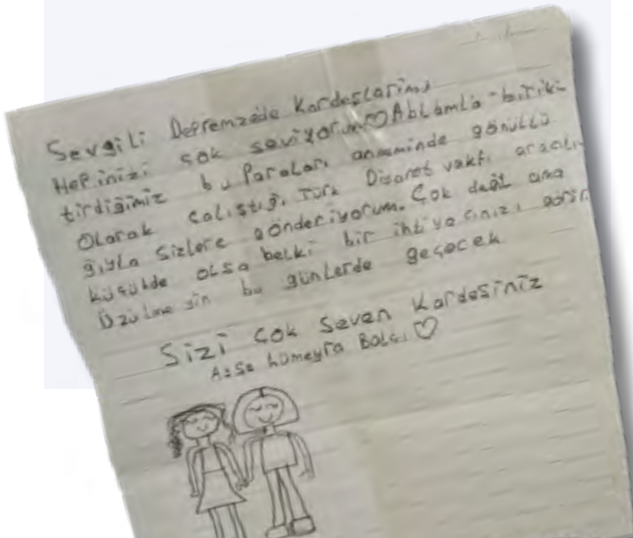 Sevgili Depremzede Kardeşlarim,
Hepinizi sok seviyorum♡Ablamla birik-
tirdiğimiz bu Paraları anneminde gönüllü
Olarak calıştığı Türk Diyanet vakfı aracılı
ğıyla sizlere gönderiyorum. Çok değil ama
küçükde olsa belki bir ihtiyacınızı görür.
Üzülmeyin bu günlerde geçecek
Sizi çok Seven Kardeşiniz
hümeyra Balcı ♡